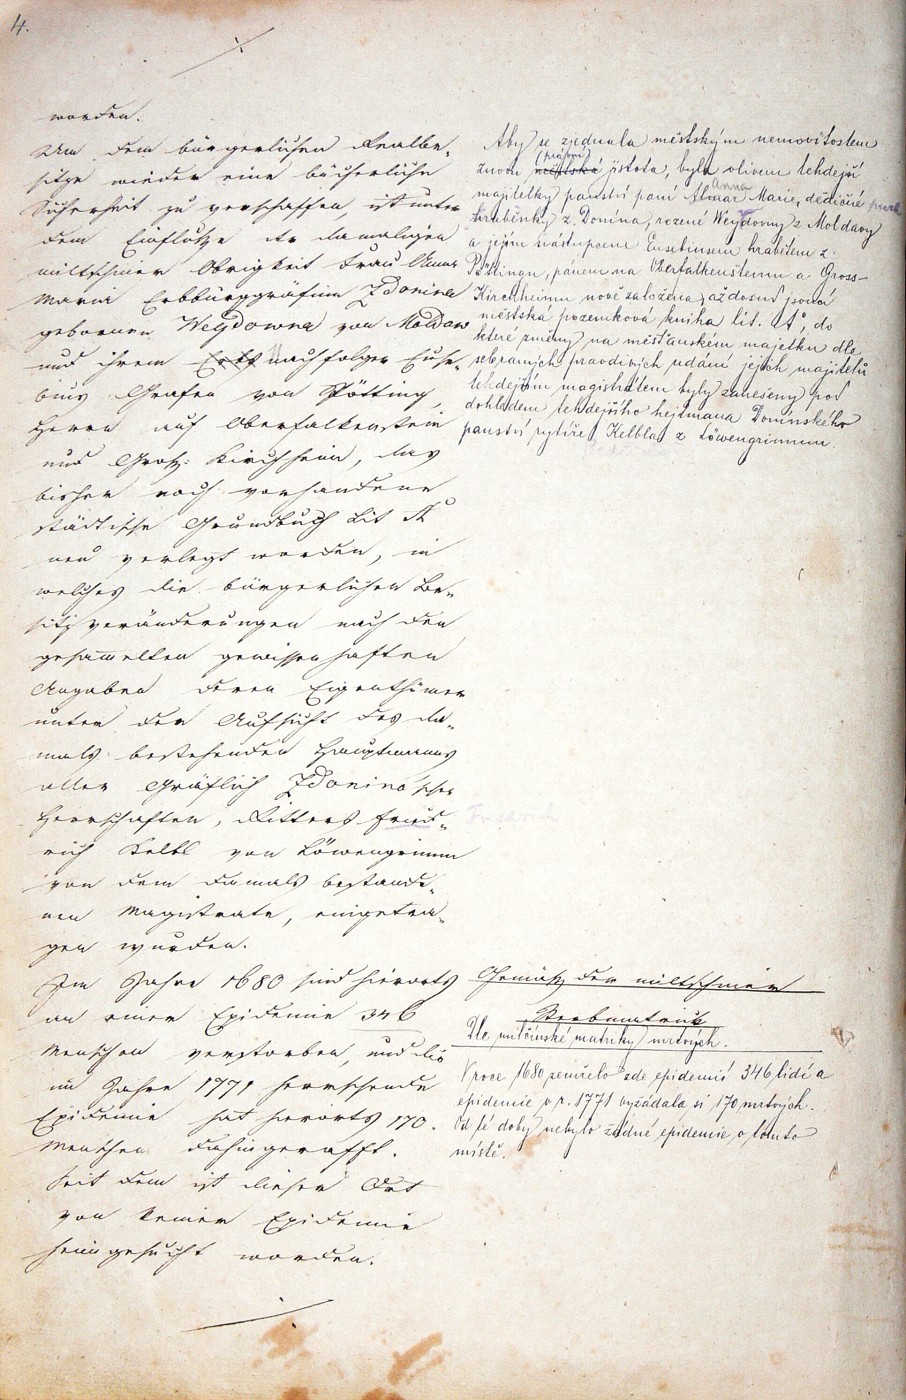 4.
worden.
Um dem bürgerlichen Realbe-
sitze wieder eine bücherliche
Sicherheit zu verschaffen, ist unter
dem Einfluße der damaligen
miltschiner Obrigkeit Frau Anna
Maria Erbburggräfinn Zdonina
gebornen Weydowna von Moldaw
und ihrem Erbs Nachfolger Euse-
bius Grafen von Pötting,
Herrn auf Oberfalkenstein
und Groß-Kirchheim, das
bisher noch vorhandene
städtische Grundbuch Lit A
neu verlegt worden, in
welches die bürgerlichen Be-
sitzveränderungen nach den
gesammelten gewissenhaften
Angaben deren Eigenthümer
unter der Aufsicht des da-
mals bestehenden Hauptmanns
aller Gräflich Zdonino'scher
Herrschaften, Ritters Fried-
rich Kelbl von Löwengrimm
von dem damals bestande-
nen Magistrate, eingetra-
gen wurden.
Im Jahre 1680 sind hierorts
an einer Epidemie 346
Menschen verstorben, und die
im Jahre 1771 herrschende
Epidemie hat hierorts 170
Menschen dahingerafft.
Seit dem ist dieser Ort
von keiner Epidemie
heimgesucht worden.
Aby se zjednala městským nemovitostem
znovu městská jistota, byla vlivem tehdejší
majitelky panství paní Anna Marie, dědičné
hraběnky z Donína, rozené Weydovny z Moldavy
a jejím nástupcem Eusebiusem hrabětem z
Pöttingu, pánem na Oberfalkensteinu a Gross-
Kirchheimu nově založena až dosud jsoucí
městská pozemková kniha lit. "A", do
které změny na měšťanském majetku dle
sebraných pravdivých udání jejich majitelů
tehdejším magistrátem byly zaneseny pod
dohledem tehdejšího hejtmana Donínského
panství rytíře Kelbla z Löwengrimmu.
Friedrich
Gemäß der miltschiner
Sterbematrik
Dle miltčínské matriky mrtvých.
V roce 1680 zemřelo zde epidemií 346 lidí a
epidemie v r. 1771 vyžádala si 170 mrtvých.
Od té doby nebylo žádné epidemie v tomto
místě.